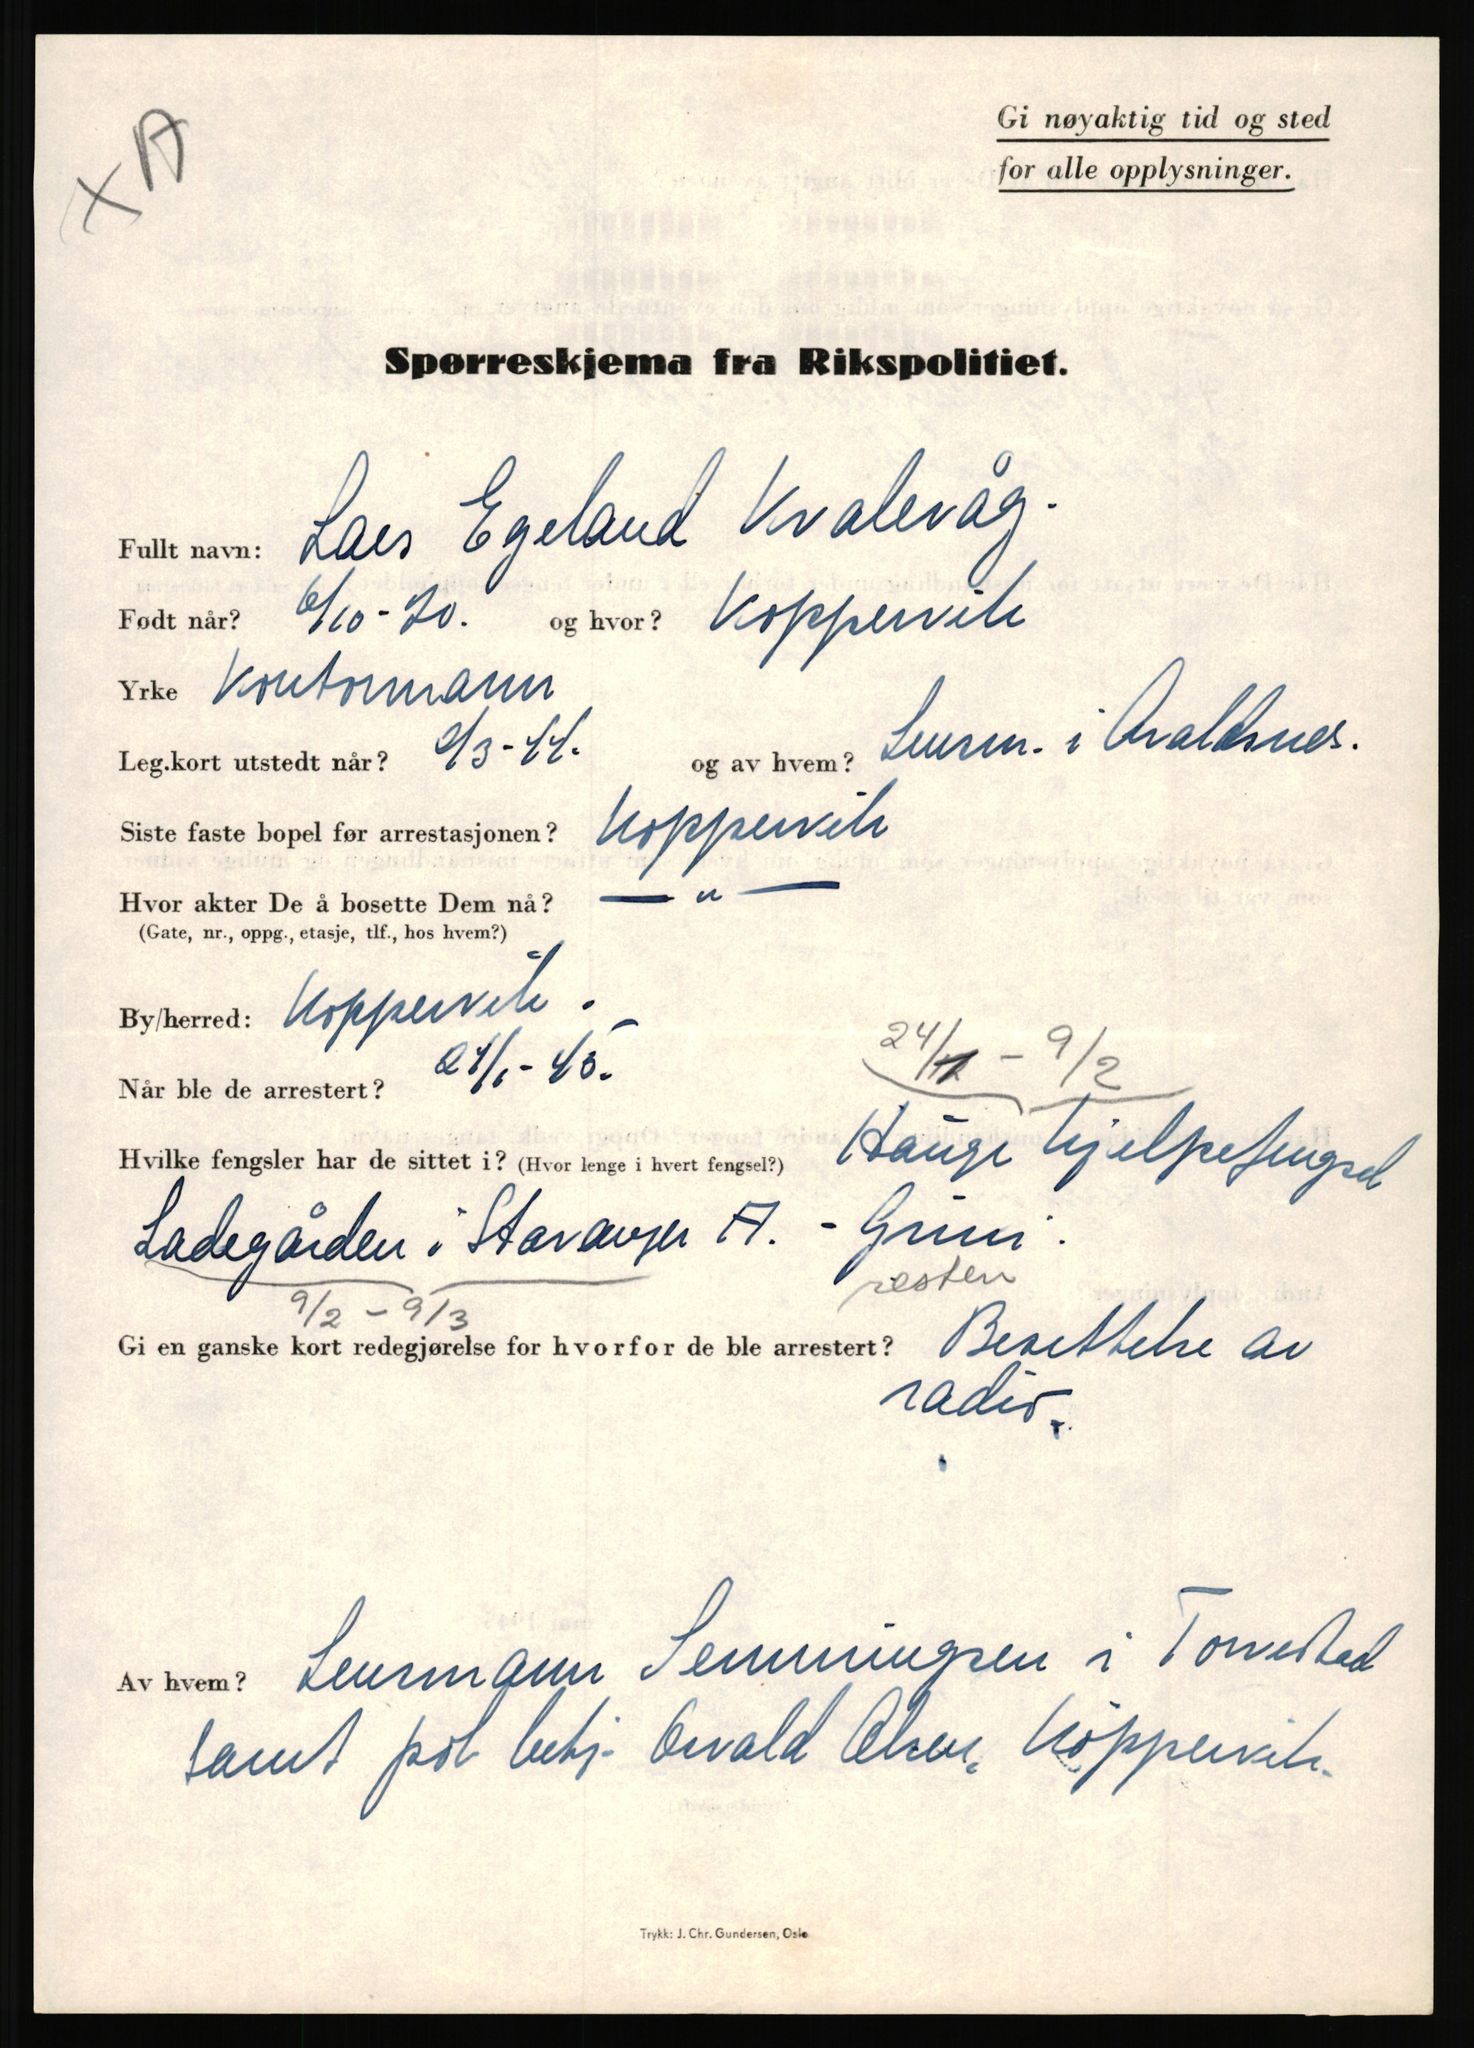 XA
Gi nøyaktig tid og sted
for alle opplysninger.
Spørreskjema fra Rikspolitiet.
Fullt navn: Lars Egeland Kvalevåg.
Født når? 6/10-20. og hvor? Koppervik
Yrke Kontormann
Leg.kort utstedt når? 2/3-44. og av hvem? Lensm. i Avaldsnes.
Siste faste bopel før arrestasjonen? Koppervik
Hvor akter De å bosette Dem nå? — " —
(Gate, nr., oppg., etasje, tlf., hos hvem?)
By/herred: Koppervik.
24/1 - 9/2
Når ble de arrestert? 24/1-45.
Hvilke fengsler har de sittet i? (Hvor lenge i hvert fengsel?) Hauge hjelpefengsel
Ladegården i Stavanger A. - Grini.
9/2 - 9/3 resten
Gi en ganske kort redegjørelse for hvorfor de ble arrestert? Besittelse av
radio.
Av hvem? Lensmann Semmingsen i Torvestad
samt pol betj. Osvald Olsen, Koppervik.
Trykk: J. Chr. Gundersen, Oslo